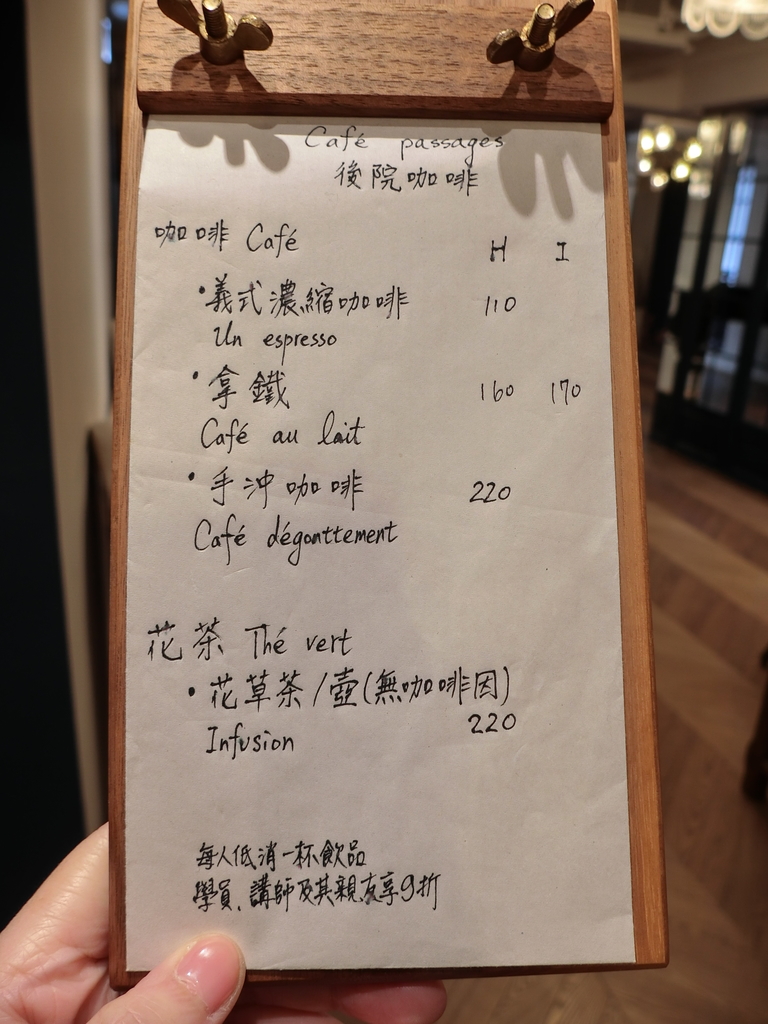 Café passages
後院咖啡
咖啡 Café H I
•義式濃縮咖啡 110
Un espresso
•拿鐵 160 170
Café au lait
•手沖咖啡 220
Café dégouttement
花茶 Thé vert
•花草茶/壺(無咖啡因)
220
Infusion
每人低消一杯飲品
學員、講師及其親友享9折